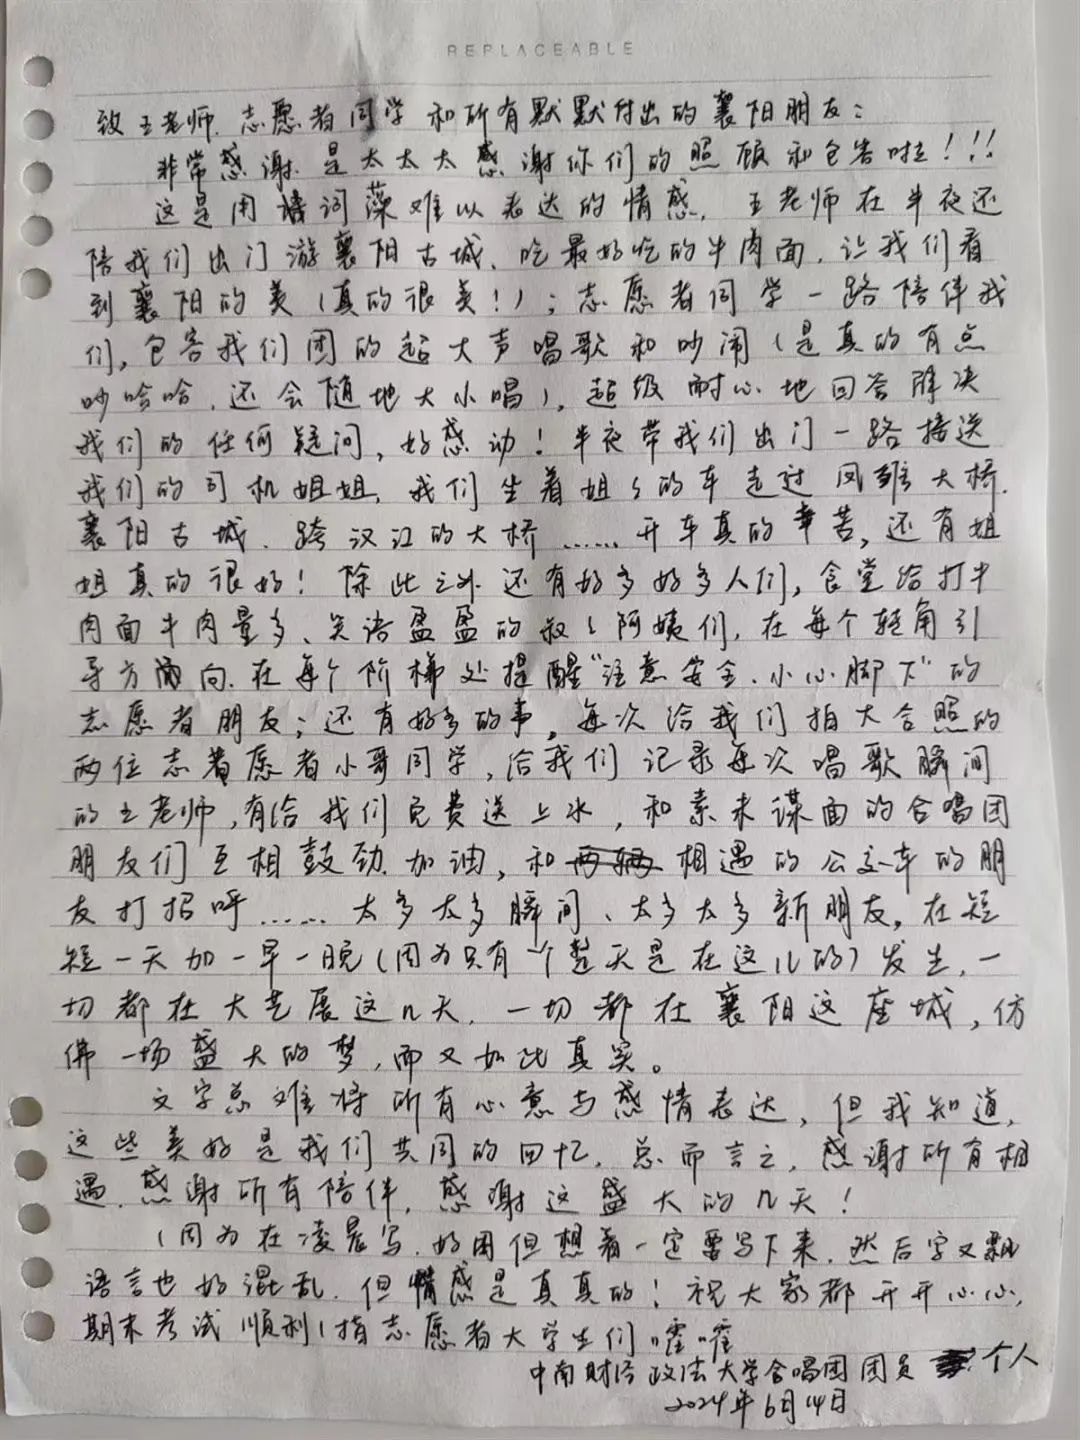 REPLACEABLE
致王老师、志愿者同学和所有默默付出的襄阳朋友：
非常感谢、是太太太感谢你们的照顾和包容啦！！！
这是用词藻难以表达的情感，王老师在半夜还
陪我们出门游襄阳古城、吃最好吃的牛肉面，让我们看
到襄阳的美（真的很美！）；志愿者同学一路陪伴我
们，包容我们团的超大声唱歌和吵闹（是真的有点
吵哈哈，还会随地大小唱），超级耐心地回答解决
我们的任何疑问，好感动！半夜带我们出门一路接送
我们的司机姐姐，我们坐着姐々的车走过凤雏大桥、
襄阳古城、跨汉江的大桥……开车真的幸苦，还有姐
姐真的很好！除此之外还有好多好多人们，食堂给打牛
肉面牛肉量多、笑语盈盈的叔々阿姨们，在每个转角引
导方向、在每个阶梯处提醒“注意安全、小心脚下”的
志愿者朋友；还有好多的事，每次给我们拍大合照的
两位志愿者小哥同学，给我们记录每次唱歌瞬间
的王老师，有给我们免费送上水，和素未谋面的合唱团
朋友们互相鼓劲加油，和相遇的公交车的朋
友打招呼……太多太多瞬间、太多太多新朋友，在短
短一天加一早一晚（因为只有一个整天是在这儿的）发生，一
切都在大艺展这几天，一切都在襄阳这座城，仿
佛一场盛大的梦，而又如此真实。
文字总难将所有心意与感情表达，但我知道，
这些美好是我们共同的回忆，总而言之，感谢所有相
遇，感谢所有陪伴，感谢这盛大的几天！
（因为在凌晨写，好困但想着一定要写下来，然后字又飘
语言也好混乱，但情感是真真的！祝大家都开开心心，
期末考试顺利（指志愿者大学生们嘿嘿
中南财经政法大学合唱团团员 个人
2024年6月14日